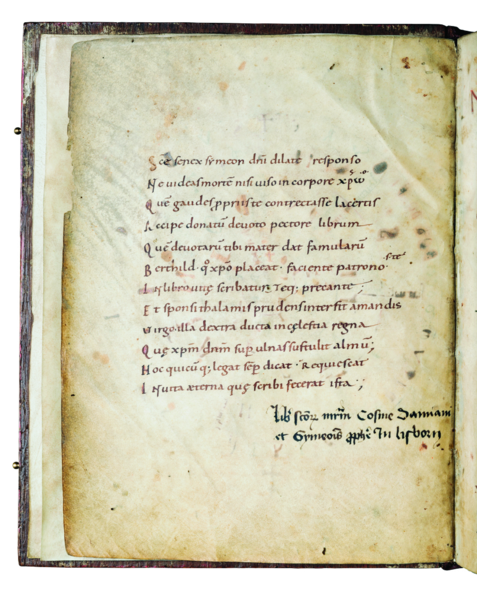 Sc̄e senex symeon dn̄i dilate responso
Ne uideas mortē nisi uiso in corpore xp̄o
Quē gaudes ppriis te contrectasse lacertis
Accipe donatū deuoto pectore librum
Quē deuotarū tibi mater dat famularū
Berthild · q̄ xp̄o placeat · faciente patrono · sc̄e
In libro uitę scribatur teq; precante ;
Et sponsi thalamis prudens intersit amandis
Virgo illa dextra ducta in cęlestia regna
Quę xp̄m dn̄m sup̄ ulnas sustulit almū ;
Hoc quicūq; legat sēp dicat · Requiescat
In uita æterna quę scribi fecerat ista · ;
Lib̄ sc̄orꝝ mr̄m Cosme Damiani
et Symeonis ꝓph̄e In lisborn